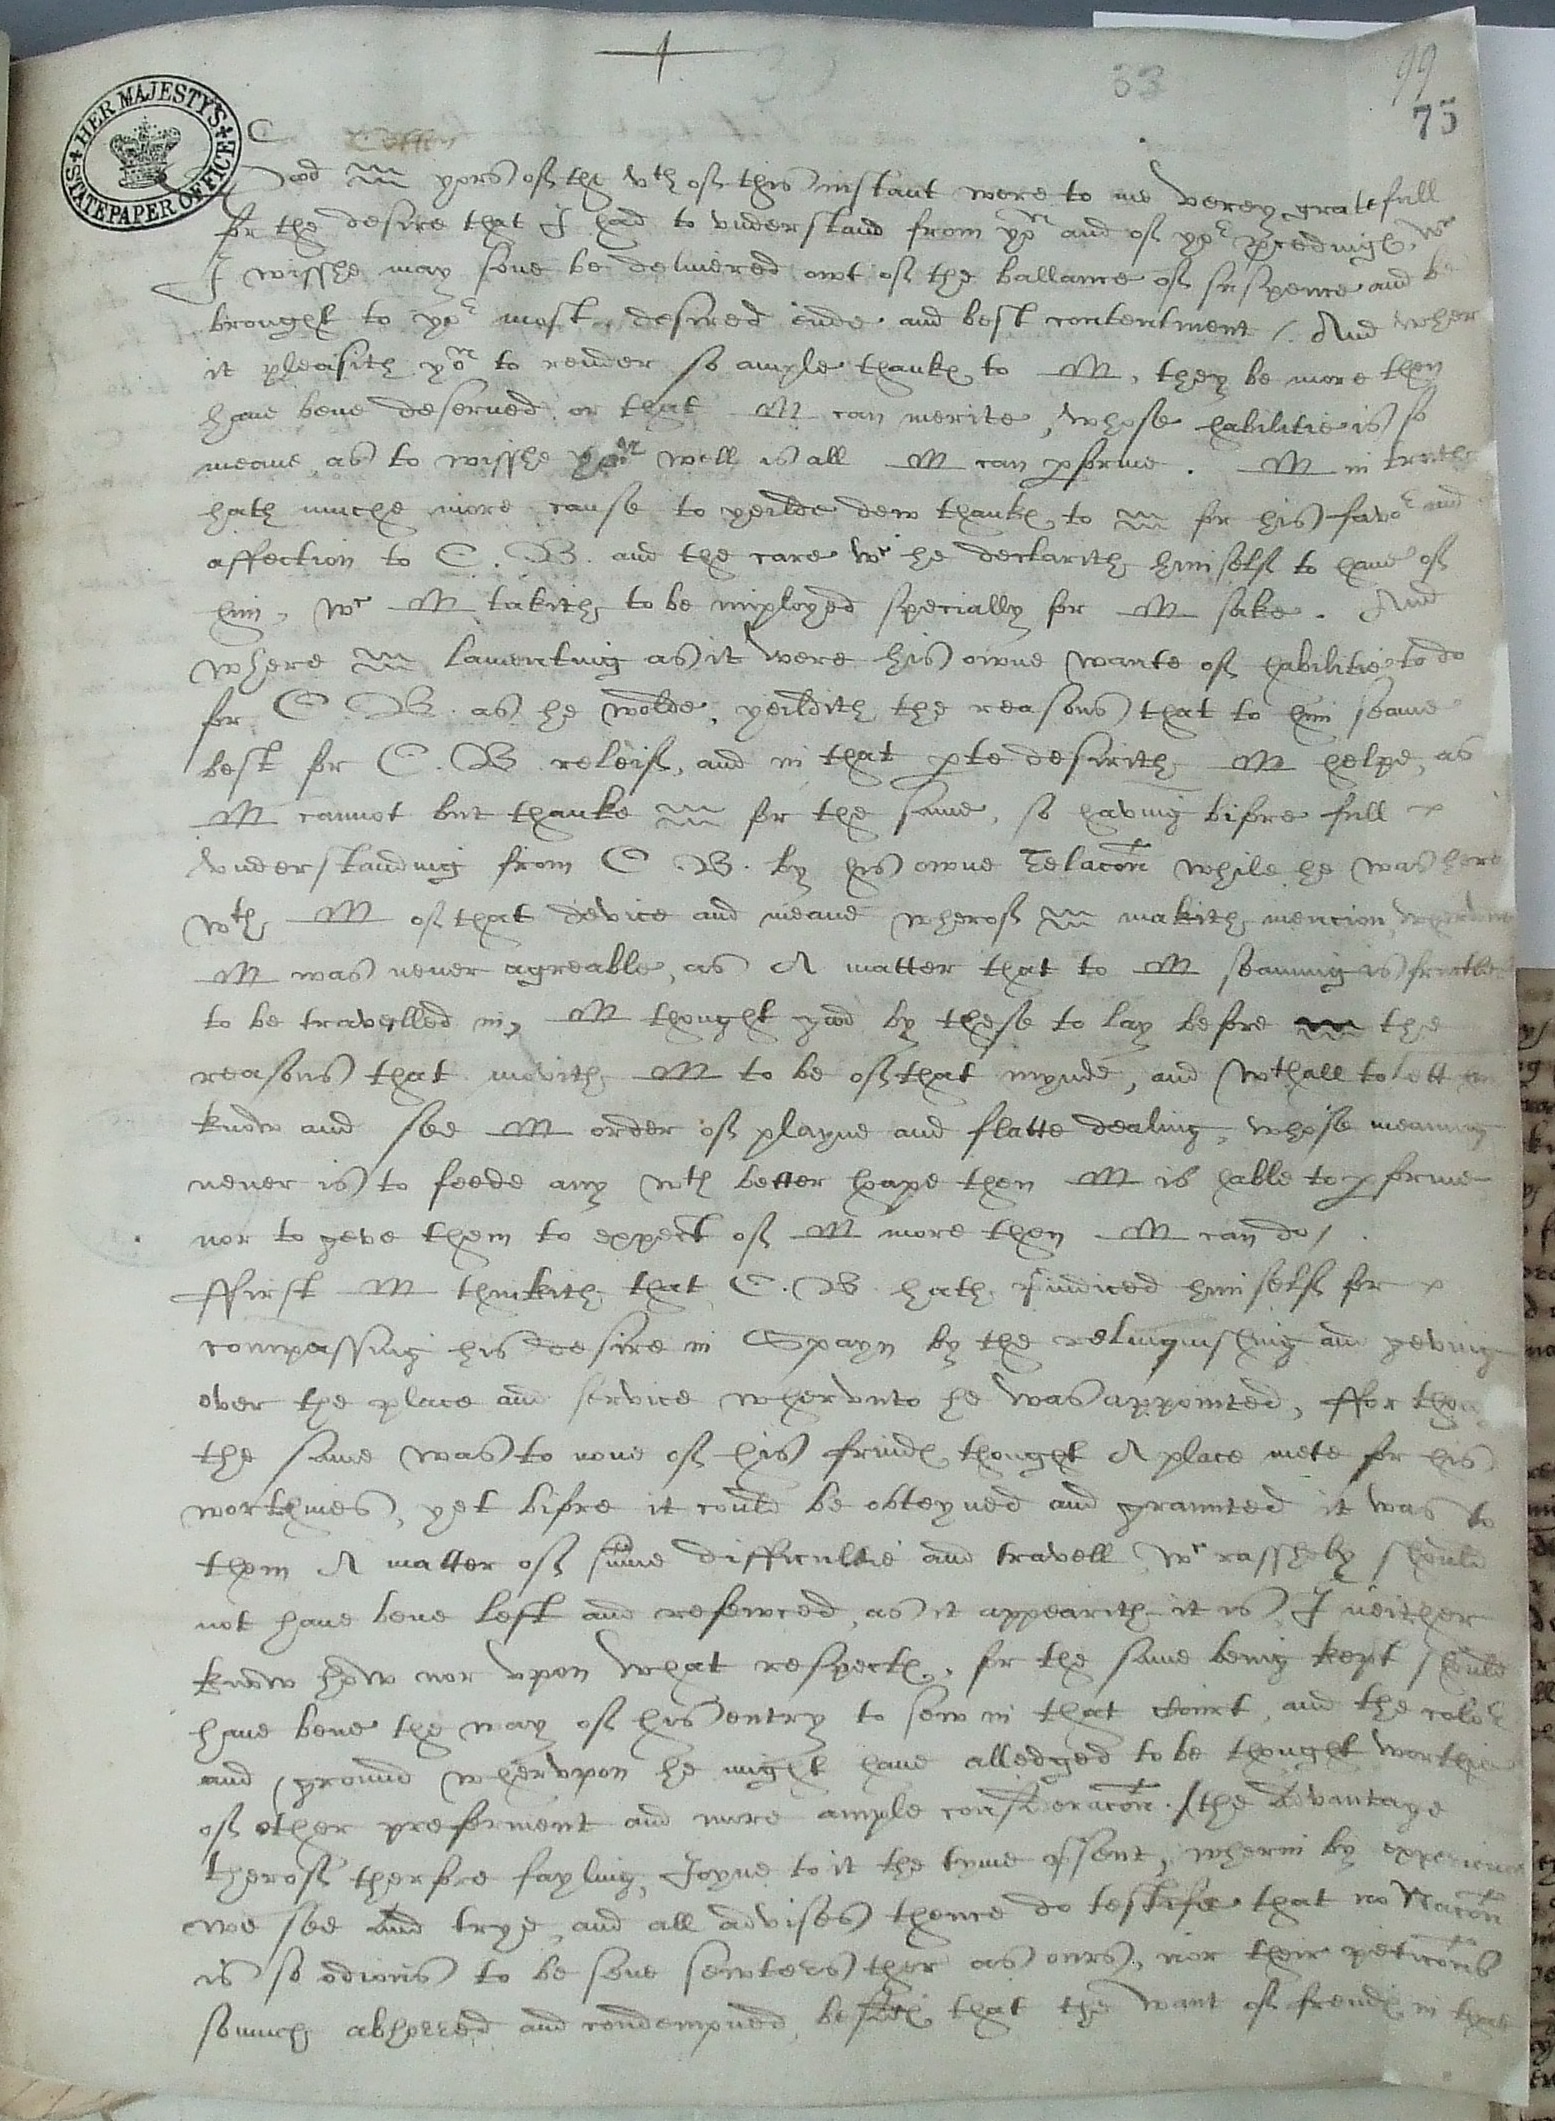 33
99
75
HER MAJESTY'S STATE PAPER OFFICE
Good m yors of the vth of this instant were to me verey gratefull
for the desire that I had to vnderstand from yow and of yor procedings, wch
I wisshe may sone be delivered owt of the ballance of suspence and be
brought to yor most desired ende and best contentment / And wher
it pleasith yow to render so ample thanks to M, they be more then
have bene deserved or that M can merite, whose habilitie is so
meane as to wisshe yow well is all M can performe. M in truth
hath muche more cause to yeilde dew thanks to m for his favor and
affection to C. B. and the care wch he declarith himself to have of
him, wch M takith to be imployed specially for M sake. And
where m lamenting as it were his owne wante of habilitie to do
for C. B. as he wolde, yeildith the reasons that to him seame
best for C. B. releif, and in that parte desirith M helpe, as
M cannot but thanke m for the same, so having bifore full
vnderstanding from C. B. by his owne relacon while he was here
wth M of that device and meane wherof m makith mention, wherunto
M was never agreable, as A matter that to M seaming is frutles
to be travelled in, M thought good by these to lay before m the
reasons that movith M to be of that mynde, and wthall to lett
know and see M order of playne and flatte dealing, whose meaning
never is to feede any wth better hope then M is hable to performe
nor to geve them to expect of M more then M can do /
ffirst M thinkith that C. B. hath preiudiced himself for
compassing his desire in Spayn by the relinquishing and geving
over the place and service whervnto he was appointed, ffor thoughe
the same was to none of his frinds thought A place mete for his
worthines, yet bifore it could be obteyned and graunted it was to
them A matter of summe difficultie and travell wch rasshely should
not have bene left and refewced, as it appearith it is, I neither
know how nor vpon what respects, for the same being kept should
have bene the way of his entry to sew in that Court, and the color
and ground whervpon he might have alledged to be thought worthie
of other preferment and more ample consideracon. / the Advantage
therof therfore fayling, Joyne to it the tyme present, wherin by experience
we see and trye, and all advises thence do testifie that no Nacon
is so odious to be sene sewters ther as ours, nor their peticons
somuch abhorred and condempned, besids that the want of frends in that